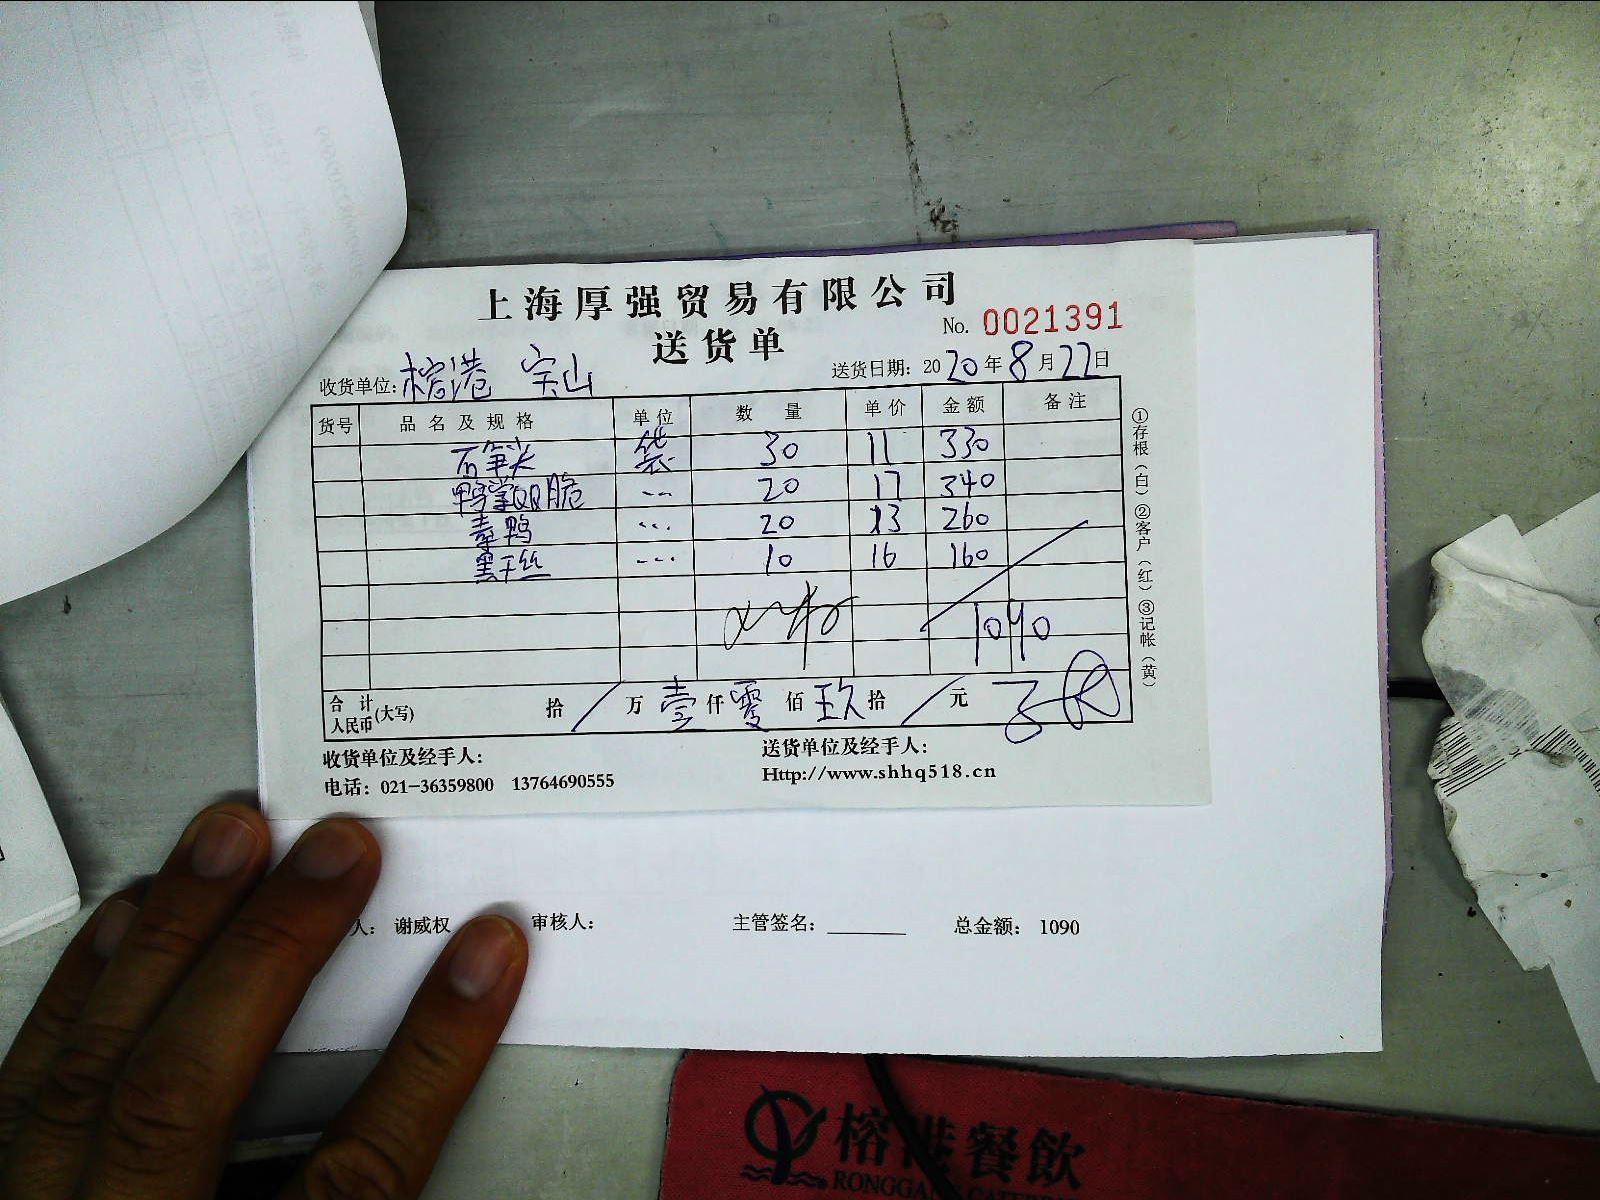 上海厚强贸易有限公司
送货单
No. 0021391
收货单位: 榕港 宝山
送货日期: 2020年8月22日
货号 品名及规格 单位 数量 单价 金额 备注
石笋尖 袋 30 11 330
鸭掌QQ脆 ... 20 17 340
素鸭 ... 20 13 260
黑干丝 ... 10 16 160
1090
合计人民币(大写) 拾 / 万 壹 仟 零 佰 玖 拾 / 元
①存根(白)②客户(红)③记帐(黄)
收货单位及经手人:
送货单位及经手人:
电话: 021-36359800 13764690555
Http://www.shhq518.cn
人: 谢威权 审核人: 主管签名: 总金额: 1090
榕港餐飲